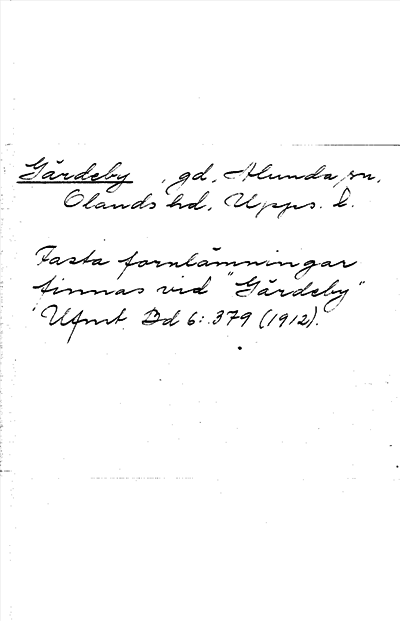 Gårdeby, gd, Alunda sn,
Olands hd, Upps. l.
Fasta fornlämningar
finnas vid "Gårdeby"
Ufmt Bd 6: 379 (1912).